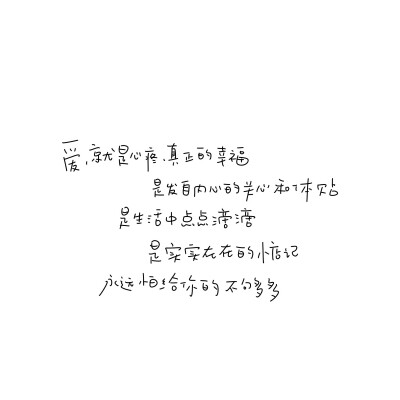 爱,就是心疼,真正的幸福
是发自内心的关心和体贴
是生活中点点滴滴
是实实在在的惦记
永远怕给你的不够多